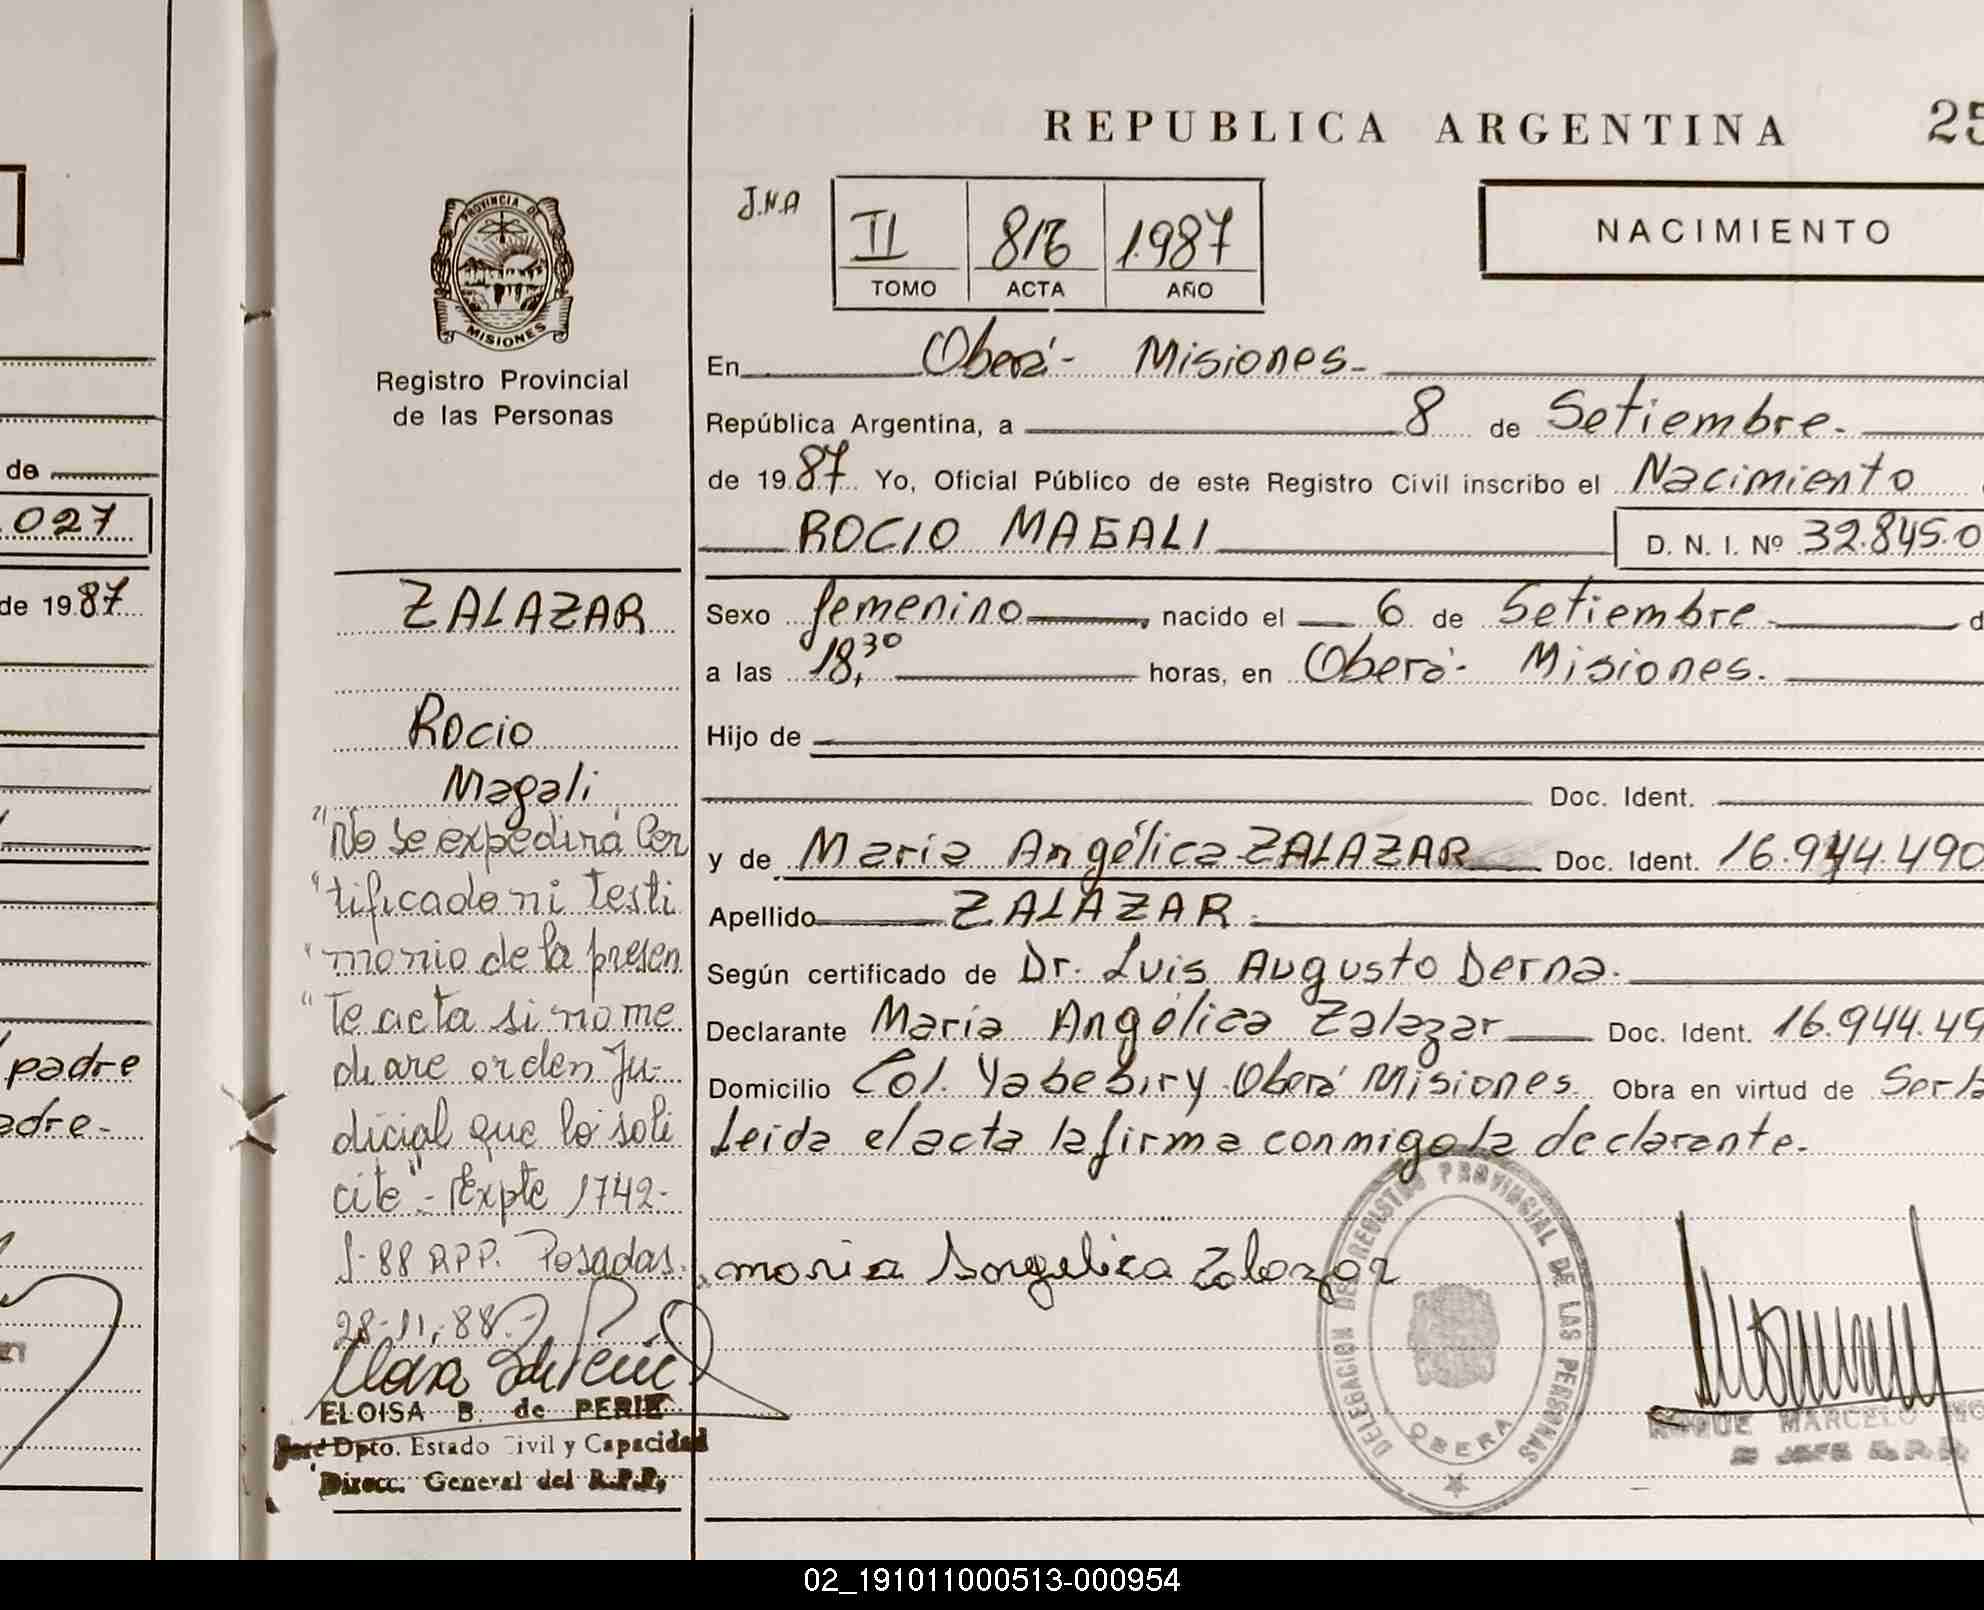 de
.027
de 1987
padre
adre-
PROVINCIA DE
MISIONES
Registro Provincial
de las Personas
ZALAZAR
Rocio
Magali
"No se expedirá Cer
"tificado ni Testi
"monio de la presen
"te acta si no me
diare orden Ju-
dicial que lo soli
cite"- Expte 1742-
88 RPP. Posadas.
28-11-88
ELOISA B. de PERIE
Jefe Dpto. Estado Civil y Capacidad
Direcc. General del R.P.P.
REPUBLICA ARGENTINA
25
J.N.A
II 816 1.987
TOMO ACTA AÑO
NACIMIENTO
En Oberá- Misiones-
República Argentina, a 8 de Setiembre-
de 1987 Yo, Oficial Público de este Registro Civil inscribo el Nacimiento
ROCIO MAGALI D. N. I. Nº 32.845.0
Sexo femenino, nacido el 6 de Setiembre d
a las 18,30 horas, en Oberá- Misiones.
Hijo de
Doc. Ident.
y de María Angélica ZALAZAR Doc. Ident. 16.944.490
Apellido ZALAZAR
Según certificado de Dr. Luis Augusto Derna.
Declarante María Angélica Zalazar Doc. Ident. 16.944.49
Domicilio Col. Yabebiry-Oberá Misiones. Obra en virtud de Ser la
Leida el acta la firma conmigo la declarante.
maria Angelica Zalazar
DELEGACION DE REGISTRO PROVINCIAL DE LAS PERSONAS
OBERA
ROQUE MARCELO
02_191011000513-000954